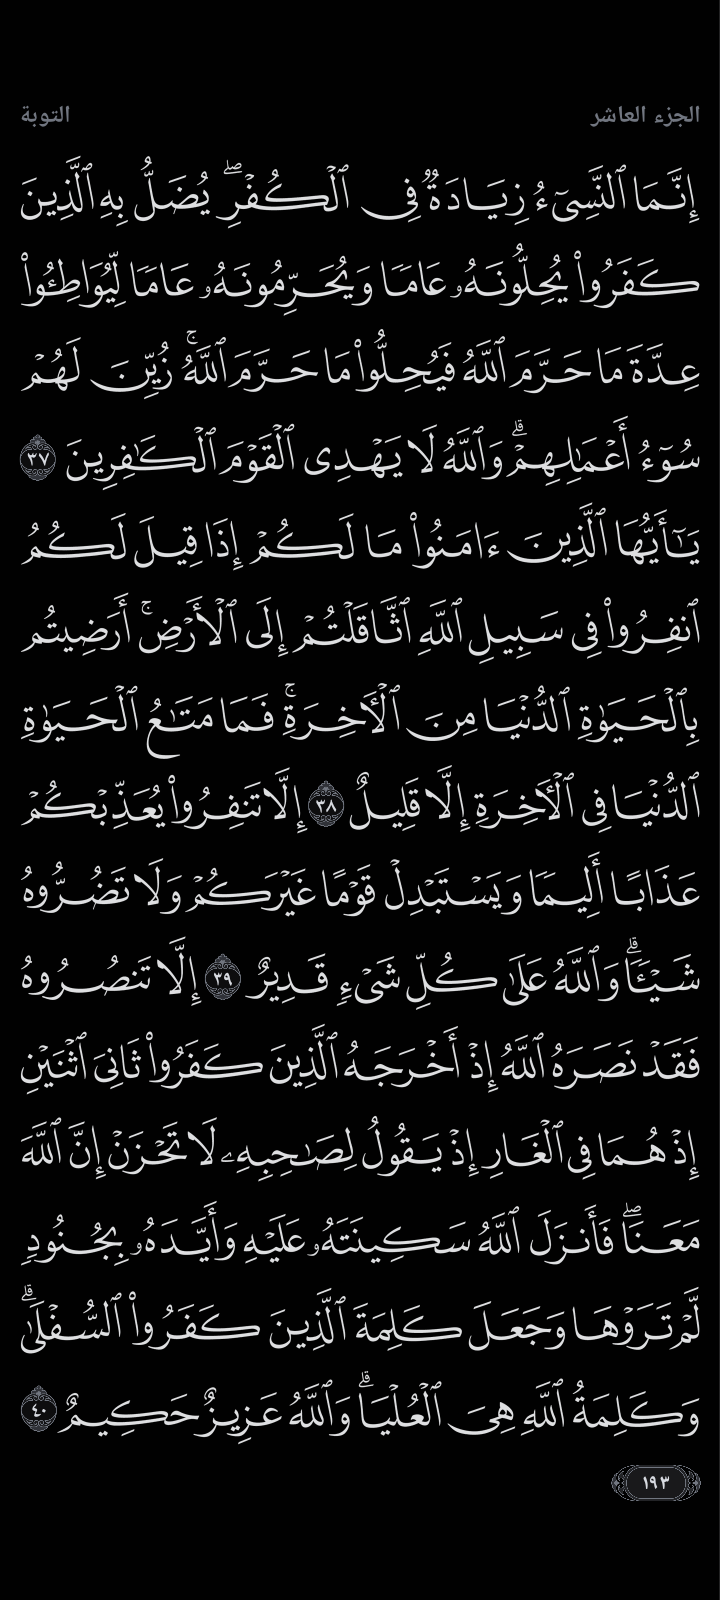 الجزء العاشر
التوبة
إِنَّمَا ٱلنَّسِىٓءُ زِيَادَةٌ فِى ٱلْكُفْرِ ۖ يُضَلُّ بِهِ ٱلَّذِينَ
كَفَرُوا۟ يُحِلُّونَهُۥ عَامًا وَيُحَرِّمُونَهُۥ عَامًا لِّيُوَاطِـُٔوا۟
عِدَّةَ مَا حَرَّمَ ٱللَّهُ فَيُحِلُّوا۟ مَا حَرَّمَ ٱللَّهُ ۚ زُيِّنَ لَهُمْ
سُوٓءُ أَعْمَـٰلِهِمْ ۗ وَٱللَّهُ لَا يَهْدِى ٱلْقَوْمَ ٱلْكَـٰفِرِينَ ٣٧
يَـٰٓأَيُّهَا ٱلَّذِينَ ءَامَنُوا۟ مَا لَكُمْ إِذَا قِيلَ لَكُمُ
ٱنفِرُوا۟ فِى سَبِيلِ ٱللَّهِ ٱثَّاقَلْتُمْ إِلَى ٱلْأَرْضِ ۚ أَرَضِيتُم
بِٱلْحَيَوٰةِ ٱلدُّنْيَا مِنَ ٱلْـَٔاخِرَةِ ۚ فَمَا مَتَـٰعُ ٱلْحَيَوٰةِ
ٱلدُّنْيَا فِى ٱلْـَٔاخِرَةِ إِلَّا قَلِيلٌ ٣٨ إِلَّا تَنفِرُوا۟ يُعَذِّبْكُمْ
عَذَابًا أَلِيمًا وَيَسْتَبْدِلْ قَوْمًا غَيْرَكُمْ وَلَا تَضُرُّوهُ
شَيْـًٔا ۗ وَٱللَّهُ عَلَىٰ كُلِّ شَىْءٍ قَدِيرٌ ٣٩ إِلَّا تَنصُرُوهُ
فَقَدْ نَصَرَهُ ٱللَّهُ إِذْ أَخْرَجَهُ ٱلَّذِينَ كَفَرُوا۟ ثَانِىَ ٱثْنَيْنِ
إِذْ هُمَا فِى ٱلْغَارِ إِذْ يَقُولُ لِصَـٰحِبِهِۦ لَا تَحْزَنْ إِنَّ ٱللَّهَ
مَعَنَا ۖ فَأَنزَلَ ٱللَّهُ سَكِينَتَهُۥ عَلَيْهِ وَأَيَّدَهُۥ بِجُنُودٍ
لَّمْ تَرَوْهَا وَجَعَلَ كَلِمَةَ ٱلَّذِينَ كَفَرُوا۟ ٱلسُّفْلَىٰ ۗ
وَكَلِمَةُ ٱللَّهِ هِىَ ٱلْعُلْيَا ۗ وَٱللَّهُ عَزِيزٌ حَكِيمٌ ٤٠
١٩٣